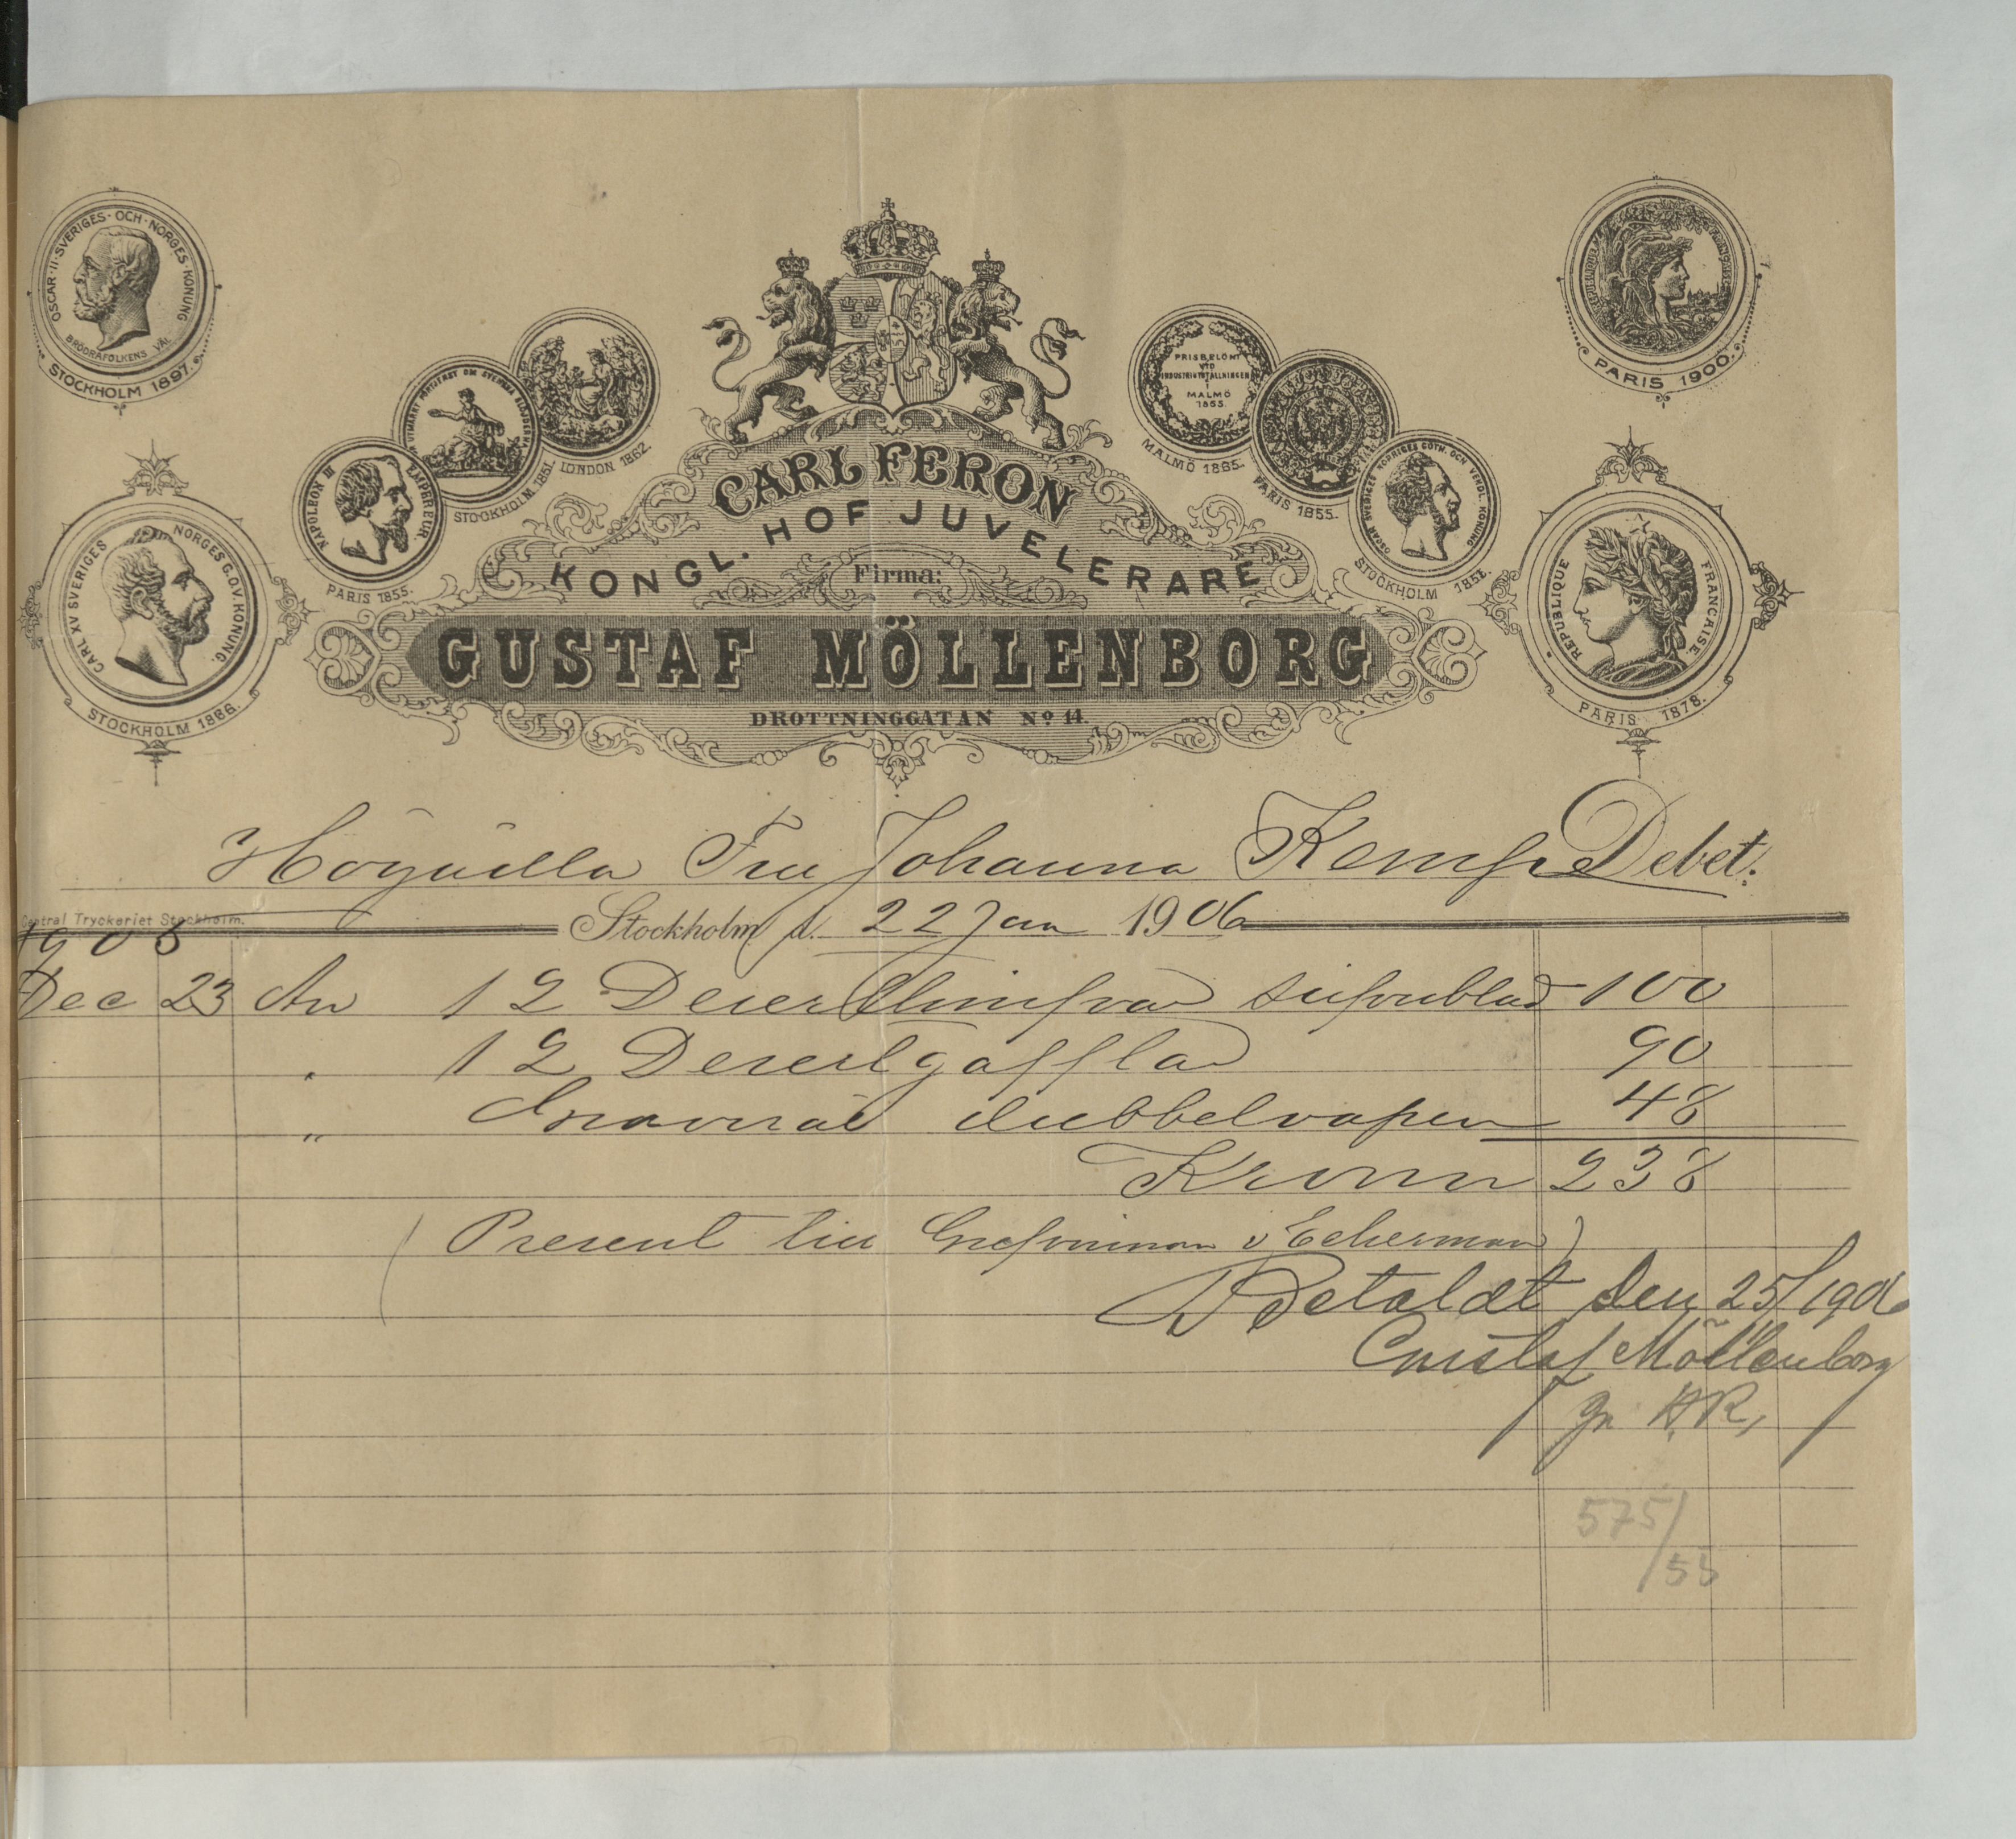 OSCAR·II·SVERIGES·OCH·NORGES·KONUNG
BRÖDRAFOLKENS VÄL
STOCKHOLM 1897.
PARIS 1900.
CARL XV SVERIGES NORGES G.O.V. KONUNG.
STOCKHOLM 1866.
NAPOLEON III EMPEREUR.
PARIS 1855.
STOCKHOLM 1851.
LONDON 1862.
PRISBELÖNT
VID
INDUSTRIUTSTÄLLNINGEN
I
MALMÖ
1865.
MALMÖ 1865.
PARIS 1855.
OSCAR SVERIGES NORRIGES GÖTH. OCH VENDL. KONUNG
STOCKHOLM
REPUBLIQUE FRANCAISE.
PARIS 1878.
CARL FERON
KONGL. HOF JUVELERARE
Firma:
GUSTAF MÖLLENBORG
DROTTNINGGATAN No 14.
Högädla Fru Johanna Kempe Debet.
Central Tryckeriet Stockholm.
Stockholm d. 22 Jan 1906
1905
Dec 23 An 12 Desertknifvar silfverblad 100
" 12 Desertgafflar 90
" Graverat dubbelvapen 48
Kronor 238
(Present till Grefvinnan v Eckerman)
Betaldt den 25/1 906
Gustaf Möllenborg
gm
575/55